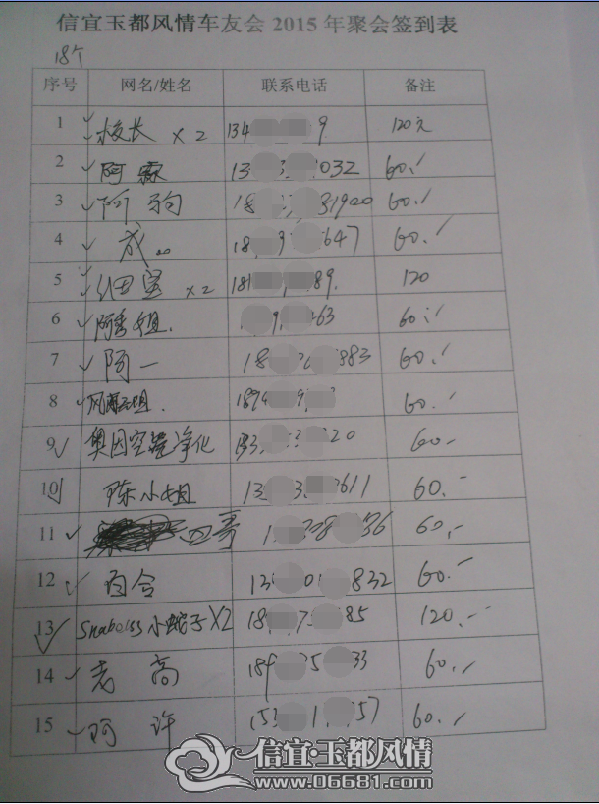 信宜玉都风情车友会 2015 年聚会签到表
18个
序号 网名/姓名 联系电话 备注
1 校长 ×2 134 9 120元
2 阿霖 13 3 032 60.-
3 阿狗 18 31900 60.-
4 成 18 9 647 60.-
5 ×2 18 89 120
6 阿秀姐. 9 63 60.-
7 阿一 18 883 60.-
8 1894 9 60.-
9 奥因空气净化 133 3 20 60.-
10 陈小姐 13 3 0611 60.-
11 四哥 1 36 60.-
12 百合 13 0 832 60.-
13 小蛇子 ×2 18 7 85 120.-
14 老高 189 35 33 60.-
15 阿许 153 1 57 60.-
信宜·玉都风情
www.06681.com